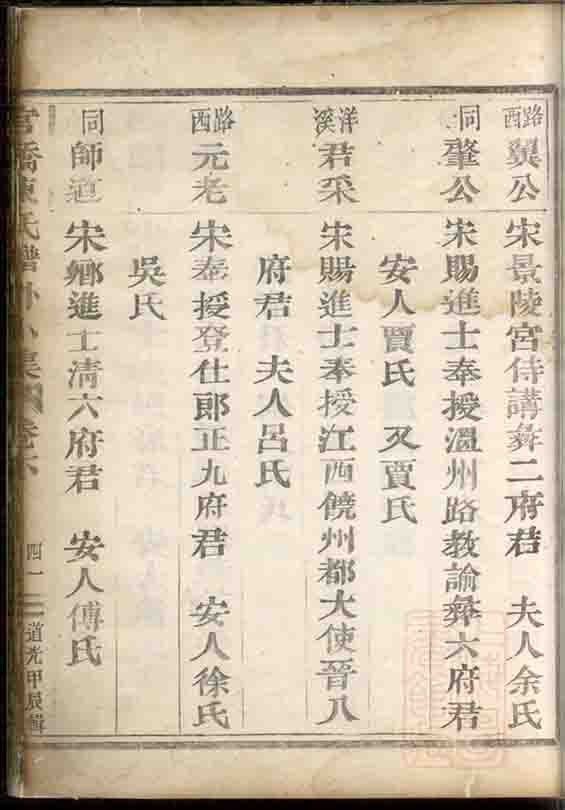 路西 翼公 宋景陵宮侍講彜二府君 夫人余氏
同 肇公 宋賜進士奉授溫州路教諭彜六府君
安人賈氏 又賈氏
洋溪 君采 宋賜進士奉授江西饒州都大使晉八
府君 夫人呂氏
路西 元老 宋奉授登仕郎正九府君 安人徐氏
吳氏
同 師道 宋鄉進士清六府君 安人傅氏
橋陳氏譜外小集 卷六 四一 道光甲辰輯